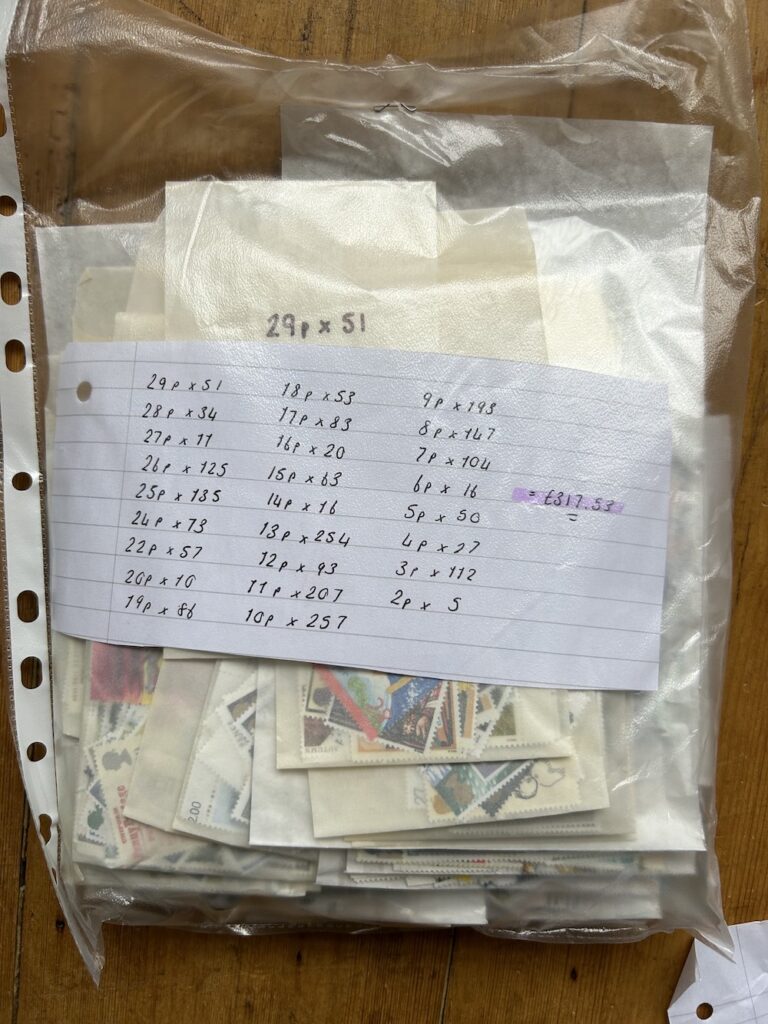 29p x 51
29p x 51
28p x 34
27p x 11
26p x 125
25p x 135
24p x 73
22p x 57
20p x 10
19p x 86
18p x 53
17p x 83
16p x 20
15p x 63
14p x 16
13p x 254
12p x 93
11p x 207
10p x 257
9p x 193
8p x 147
7p x 104
6p x 16
5p x 50
4p x 27
3p x 112
2p x 5
= £317.53